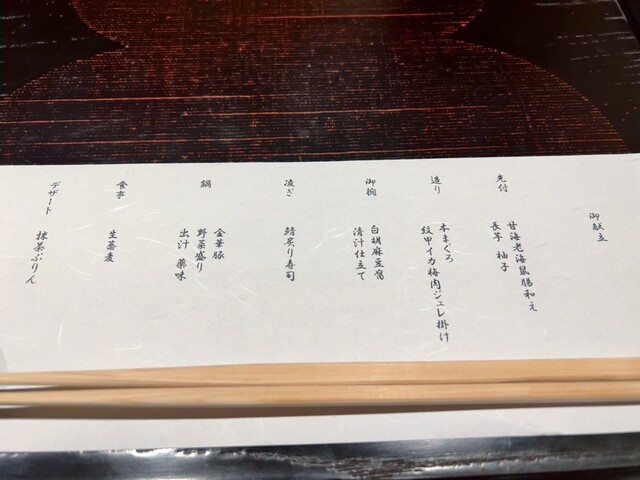 御献立
先付
甘海老海鼠腸和え
長芋 柚子
造り
本まぐろ
紋甲イカ梅肉ジュレ掛け
御椀
白胡麻豆腐
清汁仕立て
凌ぎ
鯖炙り寿司
鍋
金華豚
野菜盛り
出汁 薬味
食事
生蕎麦
デザート
抹茶ぷりん